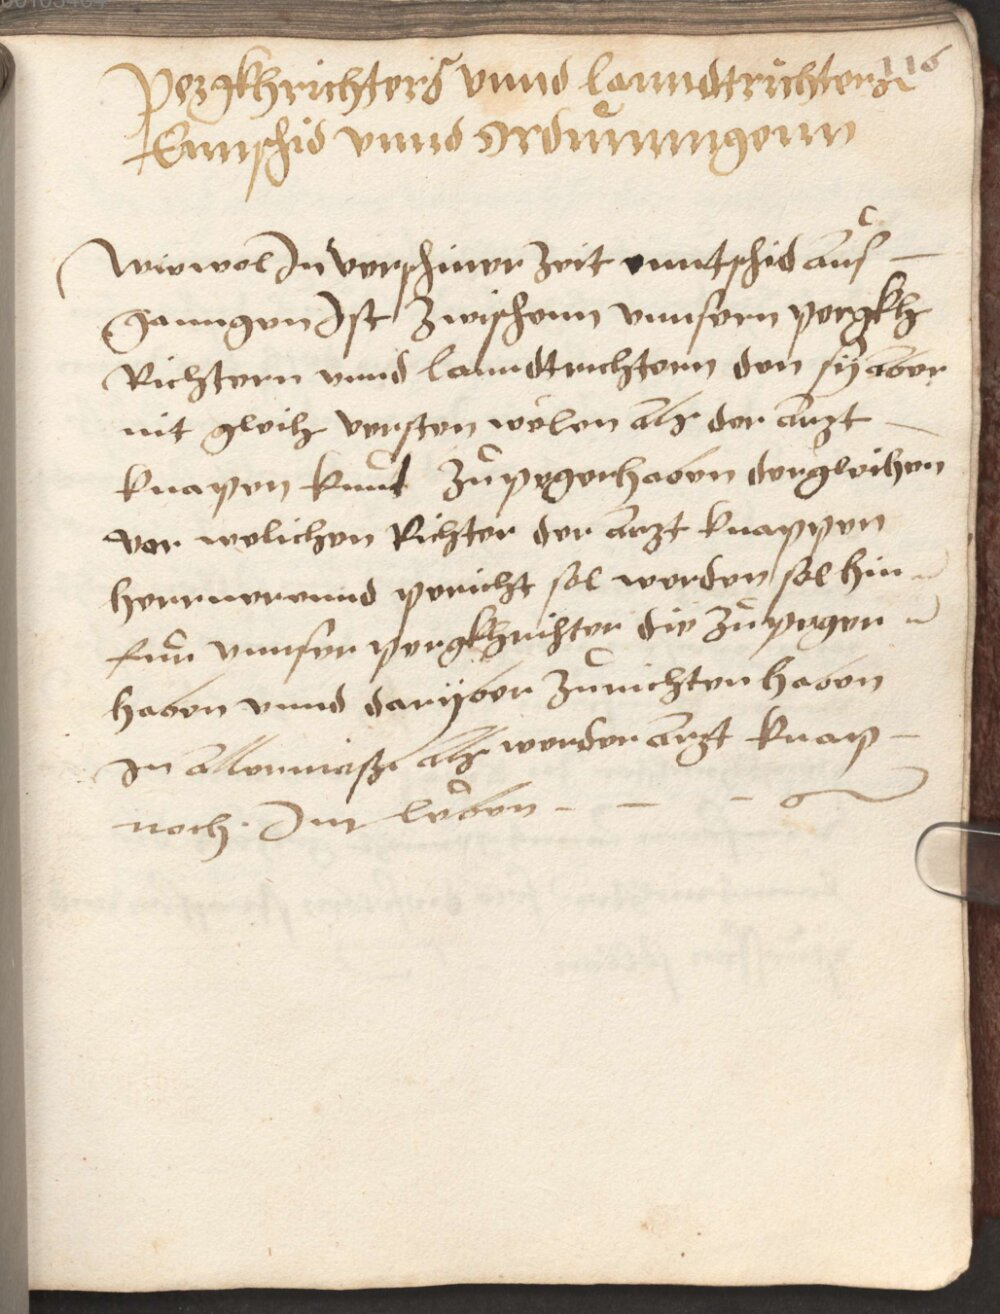 116
Pergkhrichters vnnd lanndtrichters
Enntschid vnnd Ordnunngenn
Wiewol In verschiner Zeit enntschid aus
ganngen Ist Zwischenn vnnsern pergkh
Richtern vnnd lanndtrichtern den sy aber
nit gleich versten wölen als der Arzt
knapen kind Zu peger haben dergleichen
vor welichen Richter der Arzt knappen
pericht sol werden sol hin
fur vnnser pergkhrichter die Zu peger
haben vnnd daryber Zurichten haben
In allermass als wer der Arzt knap
noch Im leben